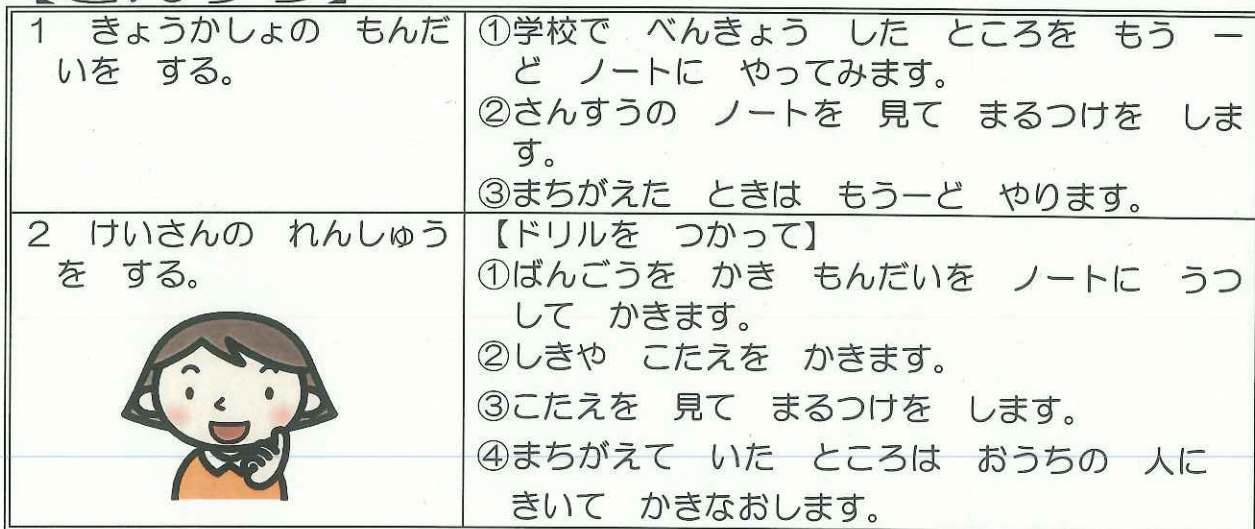 1 きょうかしょの もんだ
いを する。
①学校で べんきょう した ところを もう 一
ど ノートに やってみます。
②さんすうの ノートを 見て まるつけを しま
す。
③まちがえた ときは もう一ど やります。
2 けいさんの れんしゅう
を する。
【ドリルを つかって】
①ばんごうを かき もんだいを ノートに うつ
して かきます。
②しきや こたえを かきます。
③こたえを 見て まるつけを します。
④まちがえて いた ところは おうちの 人に
きいて かきなおします。